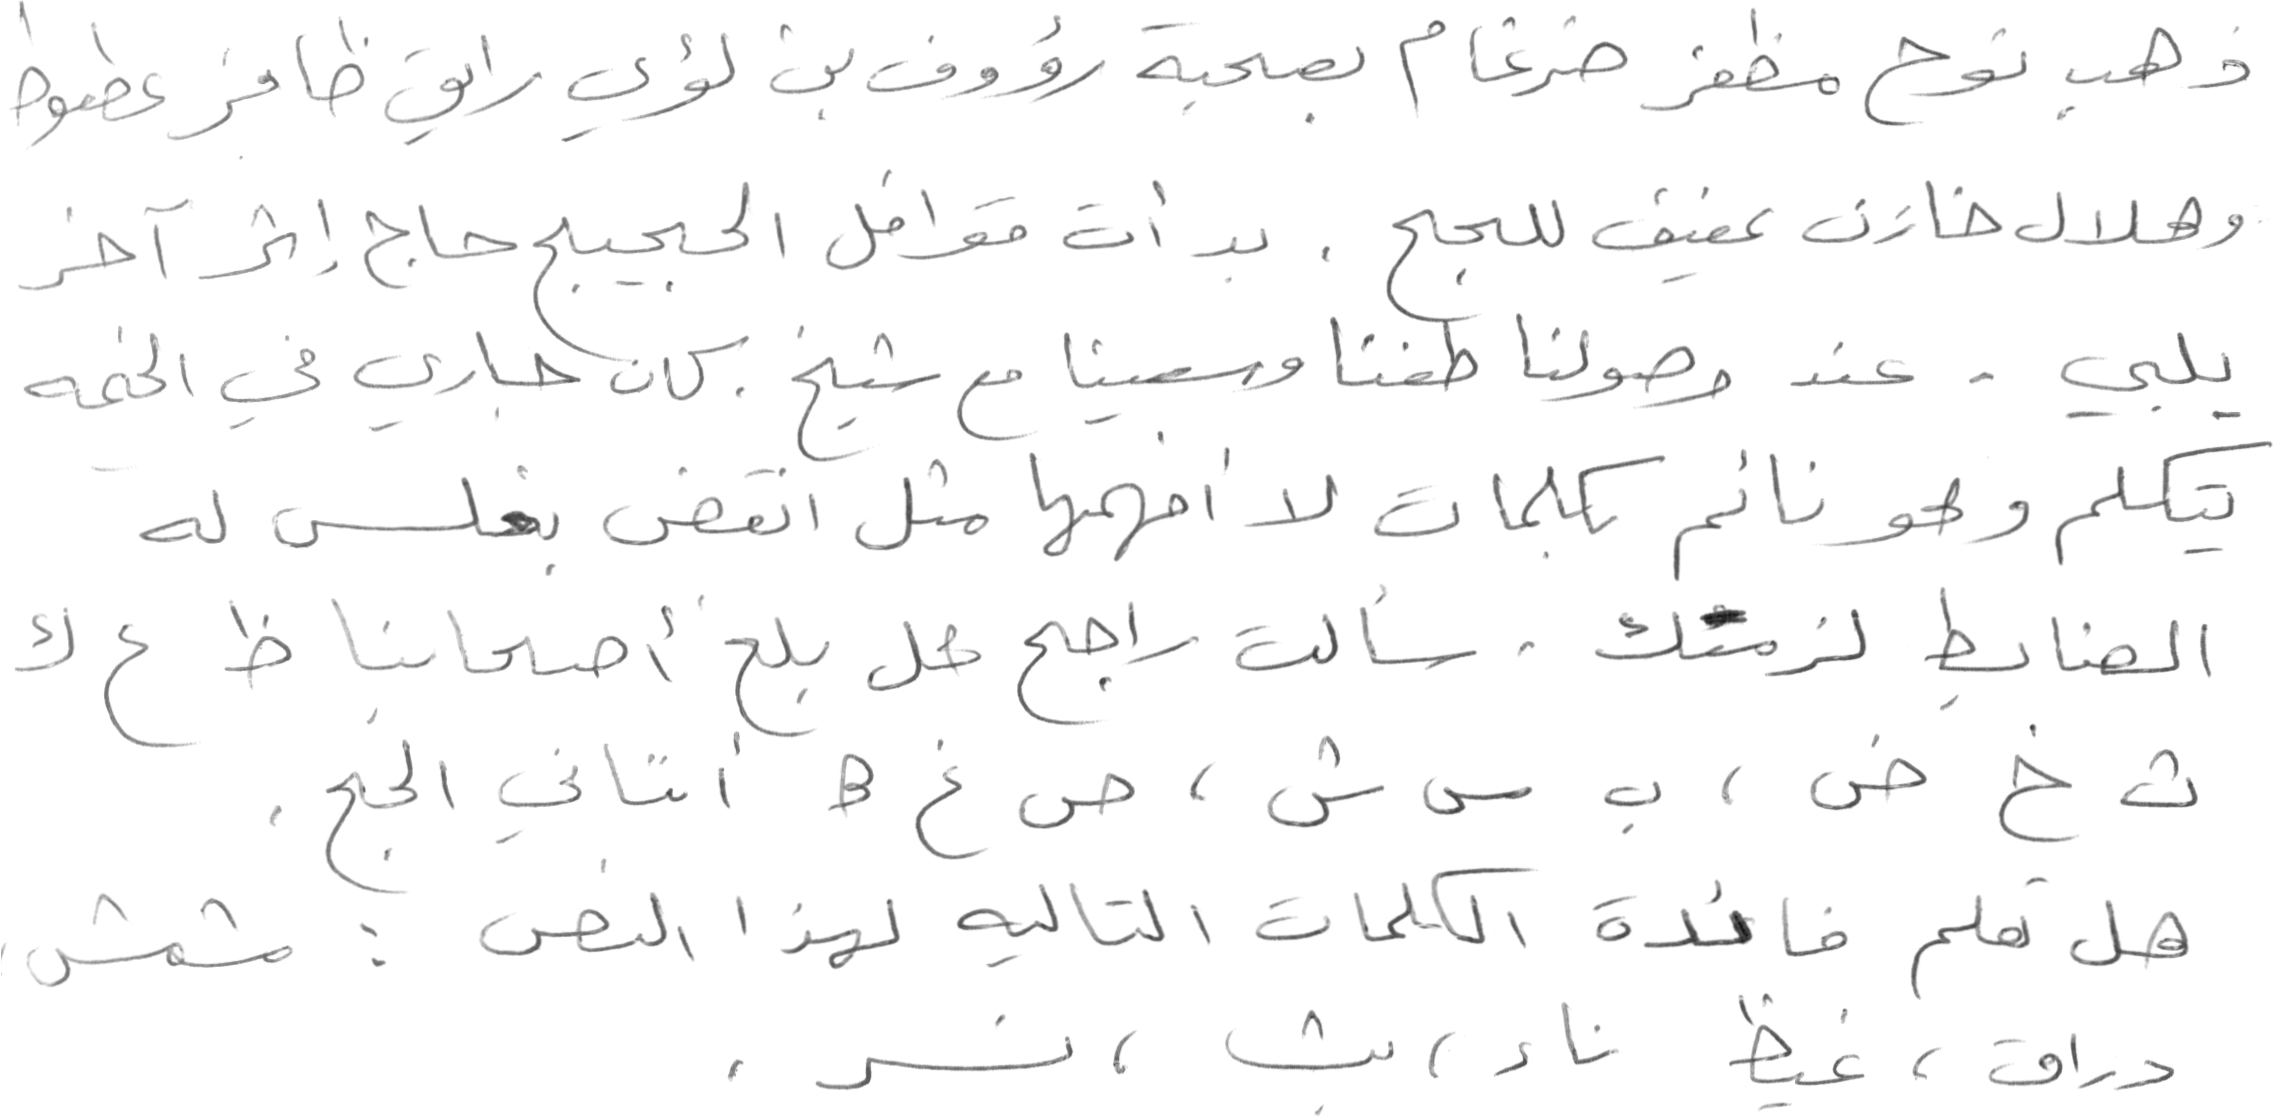 ذهب نوح مظفر ضرغام بصحبة رؤوف بن لؤي رايق ظافر عطوط
وهلال خازن عفيف للحج . بدأت قوافل الحجيج حاج إثر آخر
يلبي . عند وصولنا طفنا وسعينا مع شيخ . كان جاري في الخيمه
يتكلم وهو نائم بكلمات لا أفهمها مثل انقض بغلس له
الضابط لزمتك . سألت راجح هل بلغ أصحابنا ظ ع ك
ث خ ض ، ب س ش ، ص غ ه أنتاني الحج .
هل تعلم فائدة الكلمات التاليه لهذا النص : مشمش ،
دراق ، غيظ ناء ، بث ، نسر .